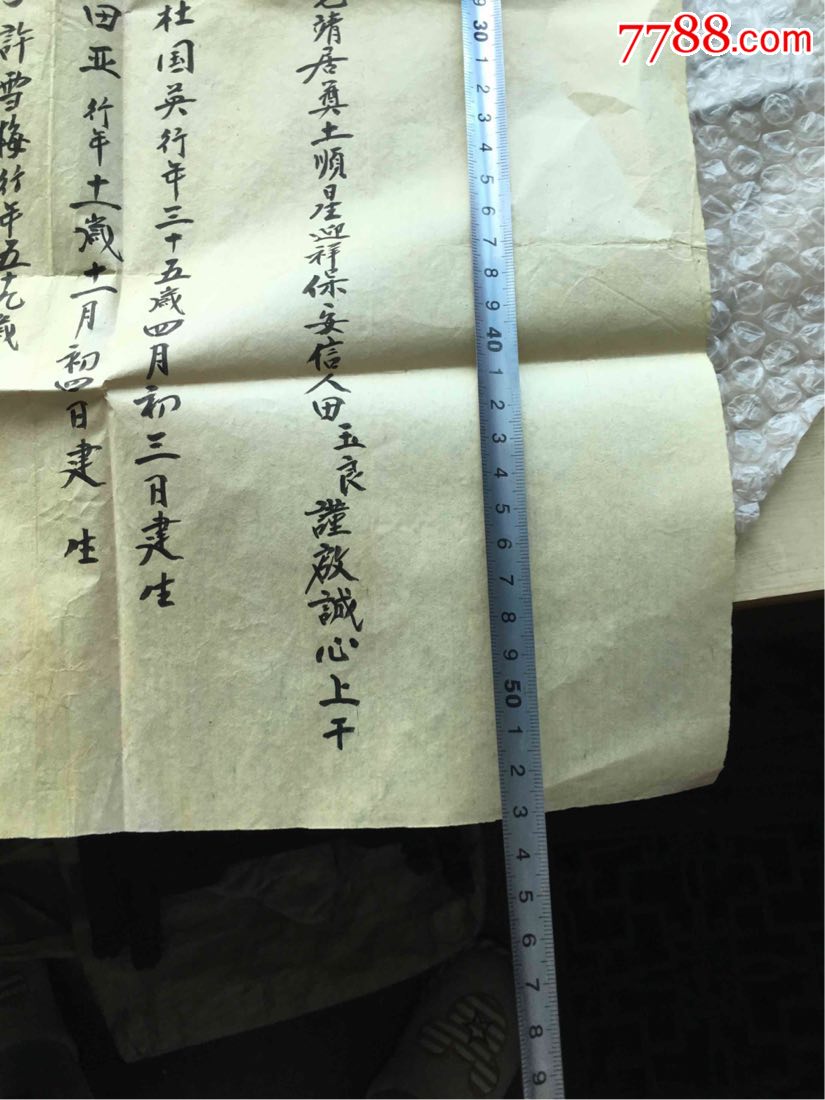 7788.com
靖居奠土順星迎祥保安信人田玉良謹啟誠心上干
杜国英行年三十五歲四月初三日建生
田亚行年十一歲十一月初四日建生
許雪梅行年五十九歲
30 1 2 3 4 5 6 7 8 9 40 1 2 3 4 5 6 7 8 9 50 1 2 3 4 5 6 7 8 9